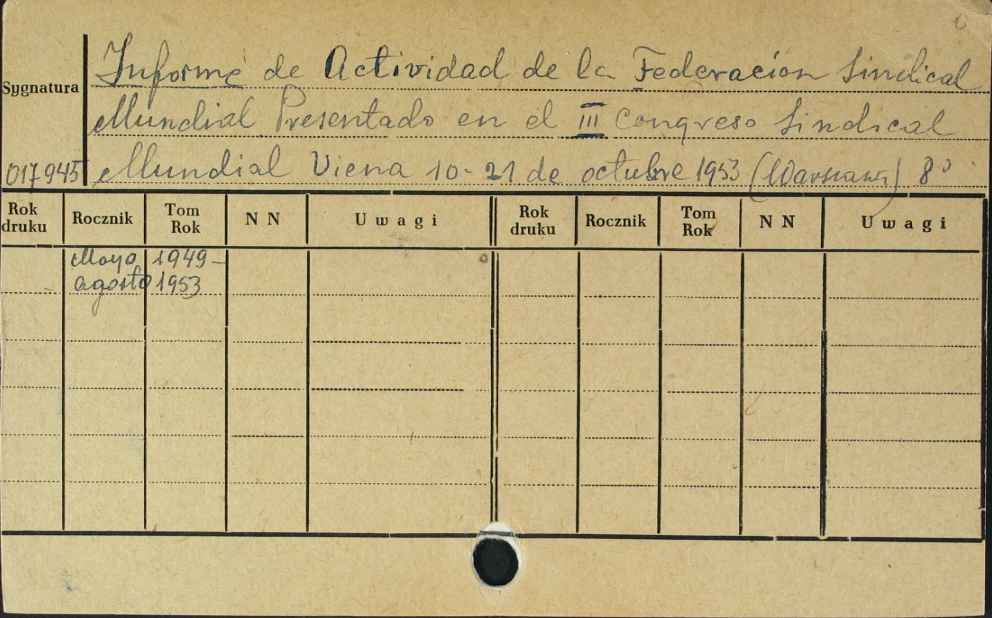 Informe de Actividad de la Federación Sindical
Sygnatura
Mundial Presentado en el III Congreso Sindical
017945 Mundial Viena 10-21 de octubre 1953 (Warszawa) 8°
Rok druku Rocznik Tom Rok NN Uwagi Rok druku Rocznik Tom Rok NN Uwagi
Mayo 1949-
agosto 1953